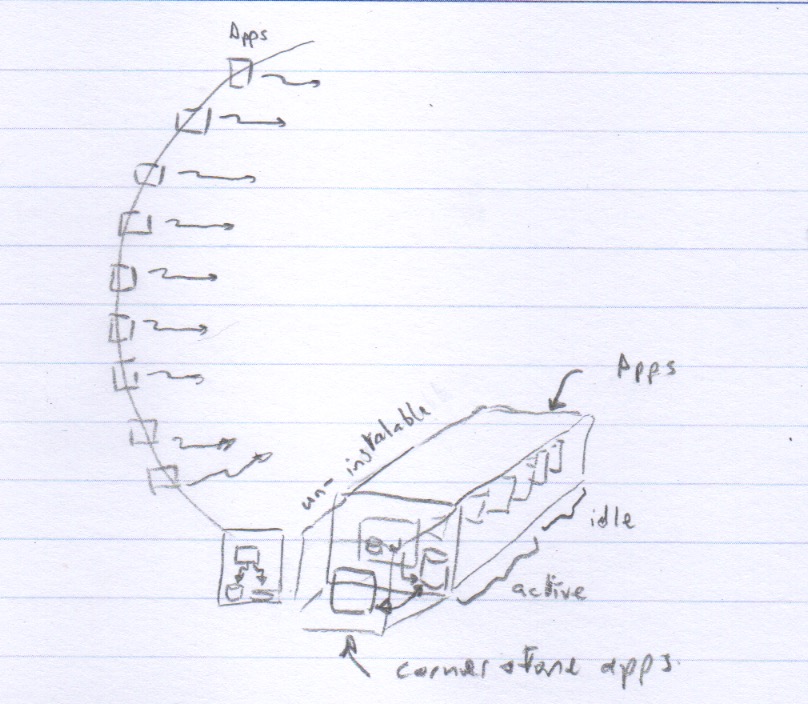 Apps
Apps
un-instalable
idle
active
corner stone apps.